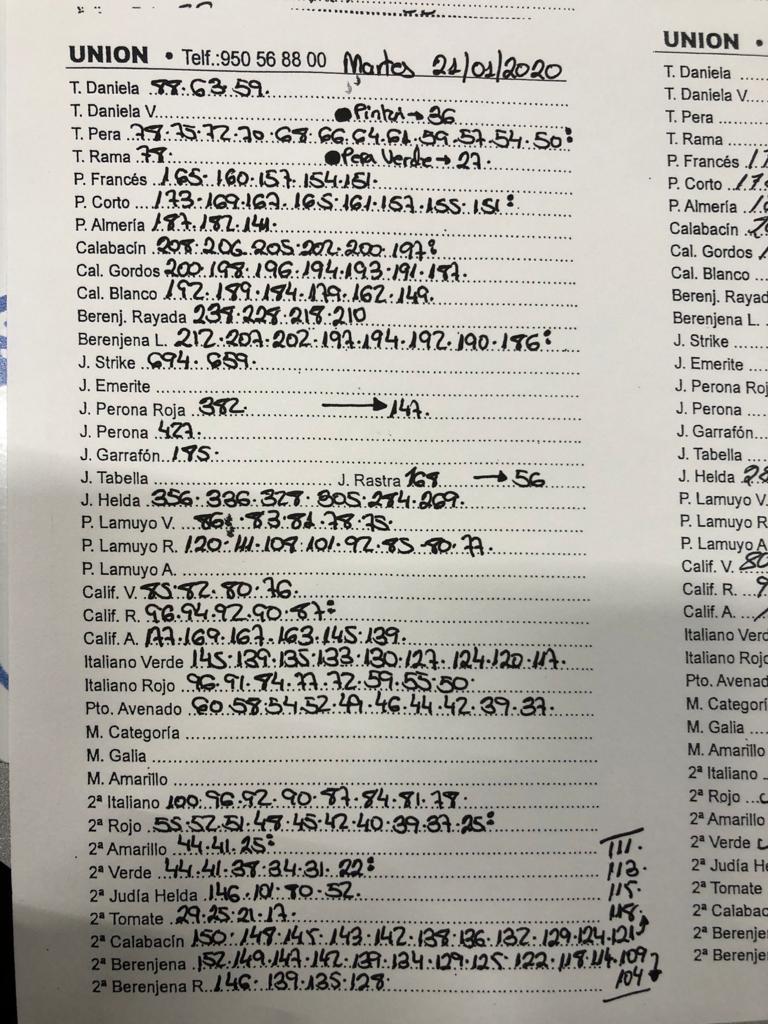 UNION • Telf.:950 56 88 00 Martes 21/01/2020
T. Daniela 88.63.59.
T. Daniela V. Pinta→36
T. Pera 78.75.72.70.68.66.64.61.59.57.54.50:
T. Rama 78. Pera Verde→27.
P. Francés 165.160.157.154.151.
P. Corto 173.169.167.165.161.157.155.151:
P. Almería 187.182.141.
Calabacín 208.206.205.202.200.197:
Cal. Gordos 200.198.196.194.193.191.187.
Cal. Blanco 192.189.184.179.162.149.
Berenj. Rayada 238.228.218.210
Berenjena L. 212.207.202.197.194.192.190.186:
J. Strike 694.659.
J. Emerite
J. Perona Roja 382. →147.
J. Perona 427.
J. Garrafón 185.
J. Tabella J. Rastra 168 →56
J. Helda 356.336.328.305.284.269.
P. Lamuyo V. 86.83.81.78.75.
P. Lamuyo R. 120.111.108.101.92.85.80.77.
P. Lamuyo A.
Calif. V. 85.82.80.76.
Calif. R. 96.94.92.90.87:
Calif. A. 177.169.167.163.145.139.
Italiano Verde 145.139.135.133.130.127.124.120.117.
Italiano Rojo 96.91.84.77.72.59.55.50.
Pto. Avenado 60.58.54.52.49.46.44.42.39.37.
M. Categoría
M. Galia
M. Amarillo
2ª Italiano 100.96.92.90.87.84.81.78.
2ª Rojo 55.52.51.48.45.42.40.39.37.25:
2ª Amarillo 44.41.25: 111.
2ª Verde 44.41.38.34.31.22: 113.
2ª Judía Helda 146.101.80.52. 115.
2ª Tomate 29.25.21.17. 118.
2ª Calabacín 150.148.145.143.142.138.136.132.129.124.121
2ª Berenjena 152.149.147.142.139.134.129.125.122.118.114.109
2ª Berenjena R. 146.139.135.128. 104
UNION •
T. Daniela
T. Daniela V.
T. Pera
T. Rama
P. Francés
P. Corto
P. Almería
Calabacín
Cal. Gordos
Cal. Blanco
Berenj. Rayad
Berenjena L.
J. Strike
J. Emerite
J. Perona Roj
J. Perona
J. Garrafón
J. Tabella
J. Helda
P. Lamuyo V.
P. Lamuyo R
P. Lamuyo A
Calif. V.
Calif. R.
Calif. A.
Italiano Verd
Italiano Rojo
Pto. Avenado
M. Categorí
M. Galia
M. Amarillo
2ª Italiano
2ª Rojo
2ª Amarillo
2ª Verde
2ª Judía He
2ª Tomate
2ª Calabac
2ª Berenje
2ª Berenje